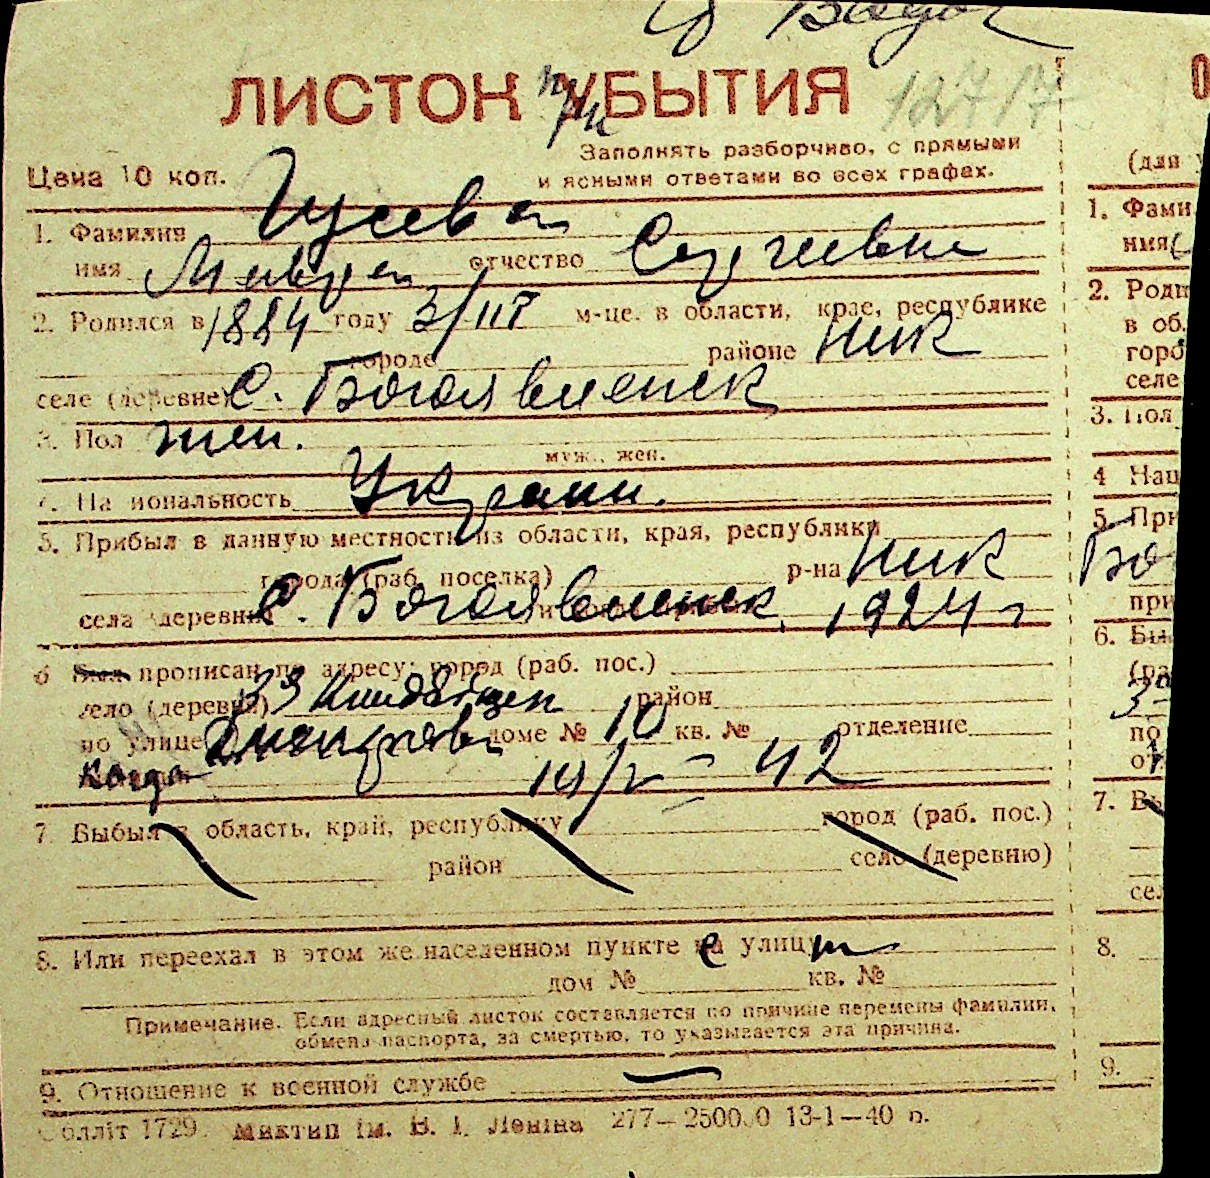 ЛИСТОК УБЫТИЯ
12717
Цена 10 коп.
Заполнять разборчиво, с прямыми
и ясными ответами во всех графах.
1. Фамилия Гусева
имя Мавра отчество Сергеевна
2. Родился в 1884 году 3/III м-це. в области, крае, республике
городе районе Ник
селе (деревне) с. Богоявленск
3. Пол жен.
муж., жен.
4. Национальность Украин.
5. Прибыл в данную местность из области, края, республики
города (раб. поселка) р-на Ник
села (деревни) с. Богоявленск 1924 г
6 Был прописан по адресу: город (раб. пос.)
село (деревня) район
по улице доме № 10 кв. № отделение
когда 19/V - 42
7 Выбыл в область, край, республику город (раб. пос.)
район село (деревню)
8. Или переехал в этом же населенном пункте с улицы
дом № кв. №
Примечание. Если адресный листок составляется по причине перемены фамилии,
обмена паспорта, за смертью, то указывается эта причина.
9. Отношение к военной службе —
Облліт 1729. Миктип ім. В. І. Леніна 277—25000 13-1—40 р.
О
(для у
1. Фами
имя
2. Роди
в об.
горо
селе
3. Пол
4 Нац
5. При
Бо
при
6. Был
(ра
по
7. Вы
се.
8.
9.